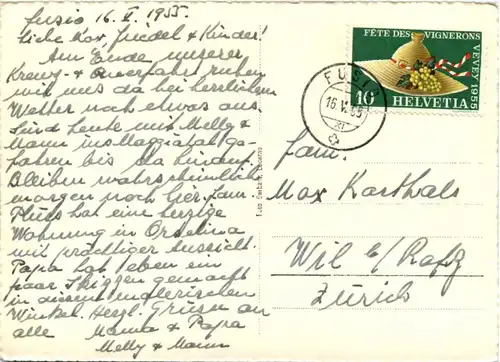 Fusio 16. V. 1955.
Liebe Max, Friedel & Kinder!
Am Ende unserer
Kreuz- & Querfahrt ruhen
wir uns da bei herrlichem
Wetter noch etwas aus.
Sind heute mit Melly &
Mann ins Maggiatal ge-
fahren bis da hinauf.
Bleiben wahrscheinlich
morgen noch hier. Fam.
hat eine herzige
Wohnung in Orselina
mit prächtiger Aussicht.
Papa hat eben ein
paar Skizzen gemacht
in diesem malerischen
Winkel. Herzl. Grüsse an
alle Mama & Papa
Melly & Mann
FÊTE DES VIGNERONS
VEVEY 1955
10 HELVETIA
FUSIO
16.V.55
Foto
Fam.
Max Karthals
Wil b/Rafz
Zürich